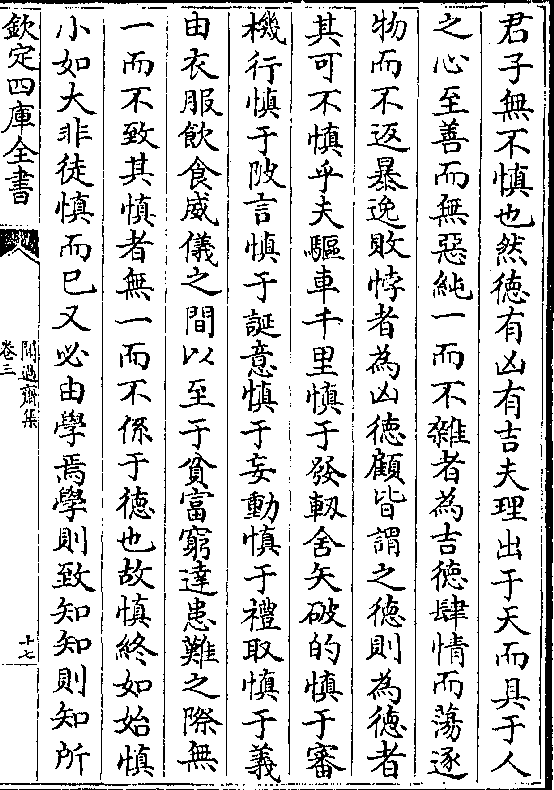 君子無不慎也然徳有凶有吉夫理出于天而具于人
之心至善而無惡純一而不雜者為吉徳肆情而蕩逐
物而不返暴逸敗悖者為凶徳顧皆謂之徳則為徳者
其可不慎乎夫驅車千里慎于發軔舍矢破的慎于審
機行慎于陂言慎于誕意慎于妄動慎于禮取慎于義
由衣服飲食威儀之間以至于貧富窮達患難之際無
一而不致其慎者無一而不係于徳也故慎終如始慎
小如大非徒慎而已又必由學焉學則致知知則知所
欽定四庫全書
聞過齋集
卷三
十七